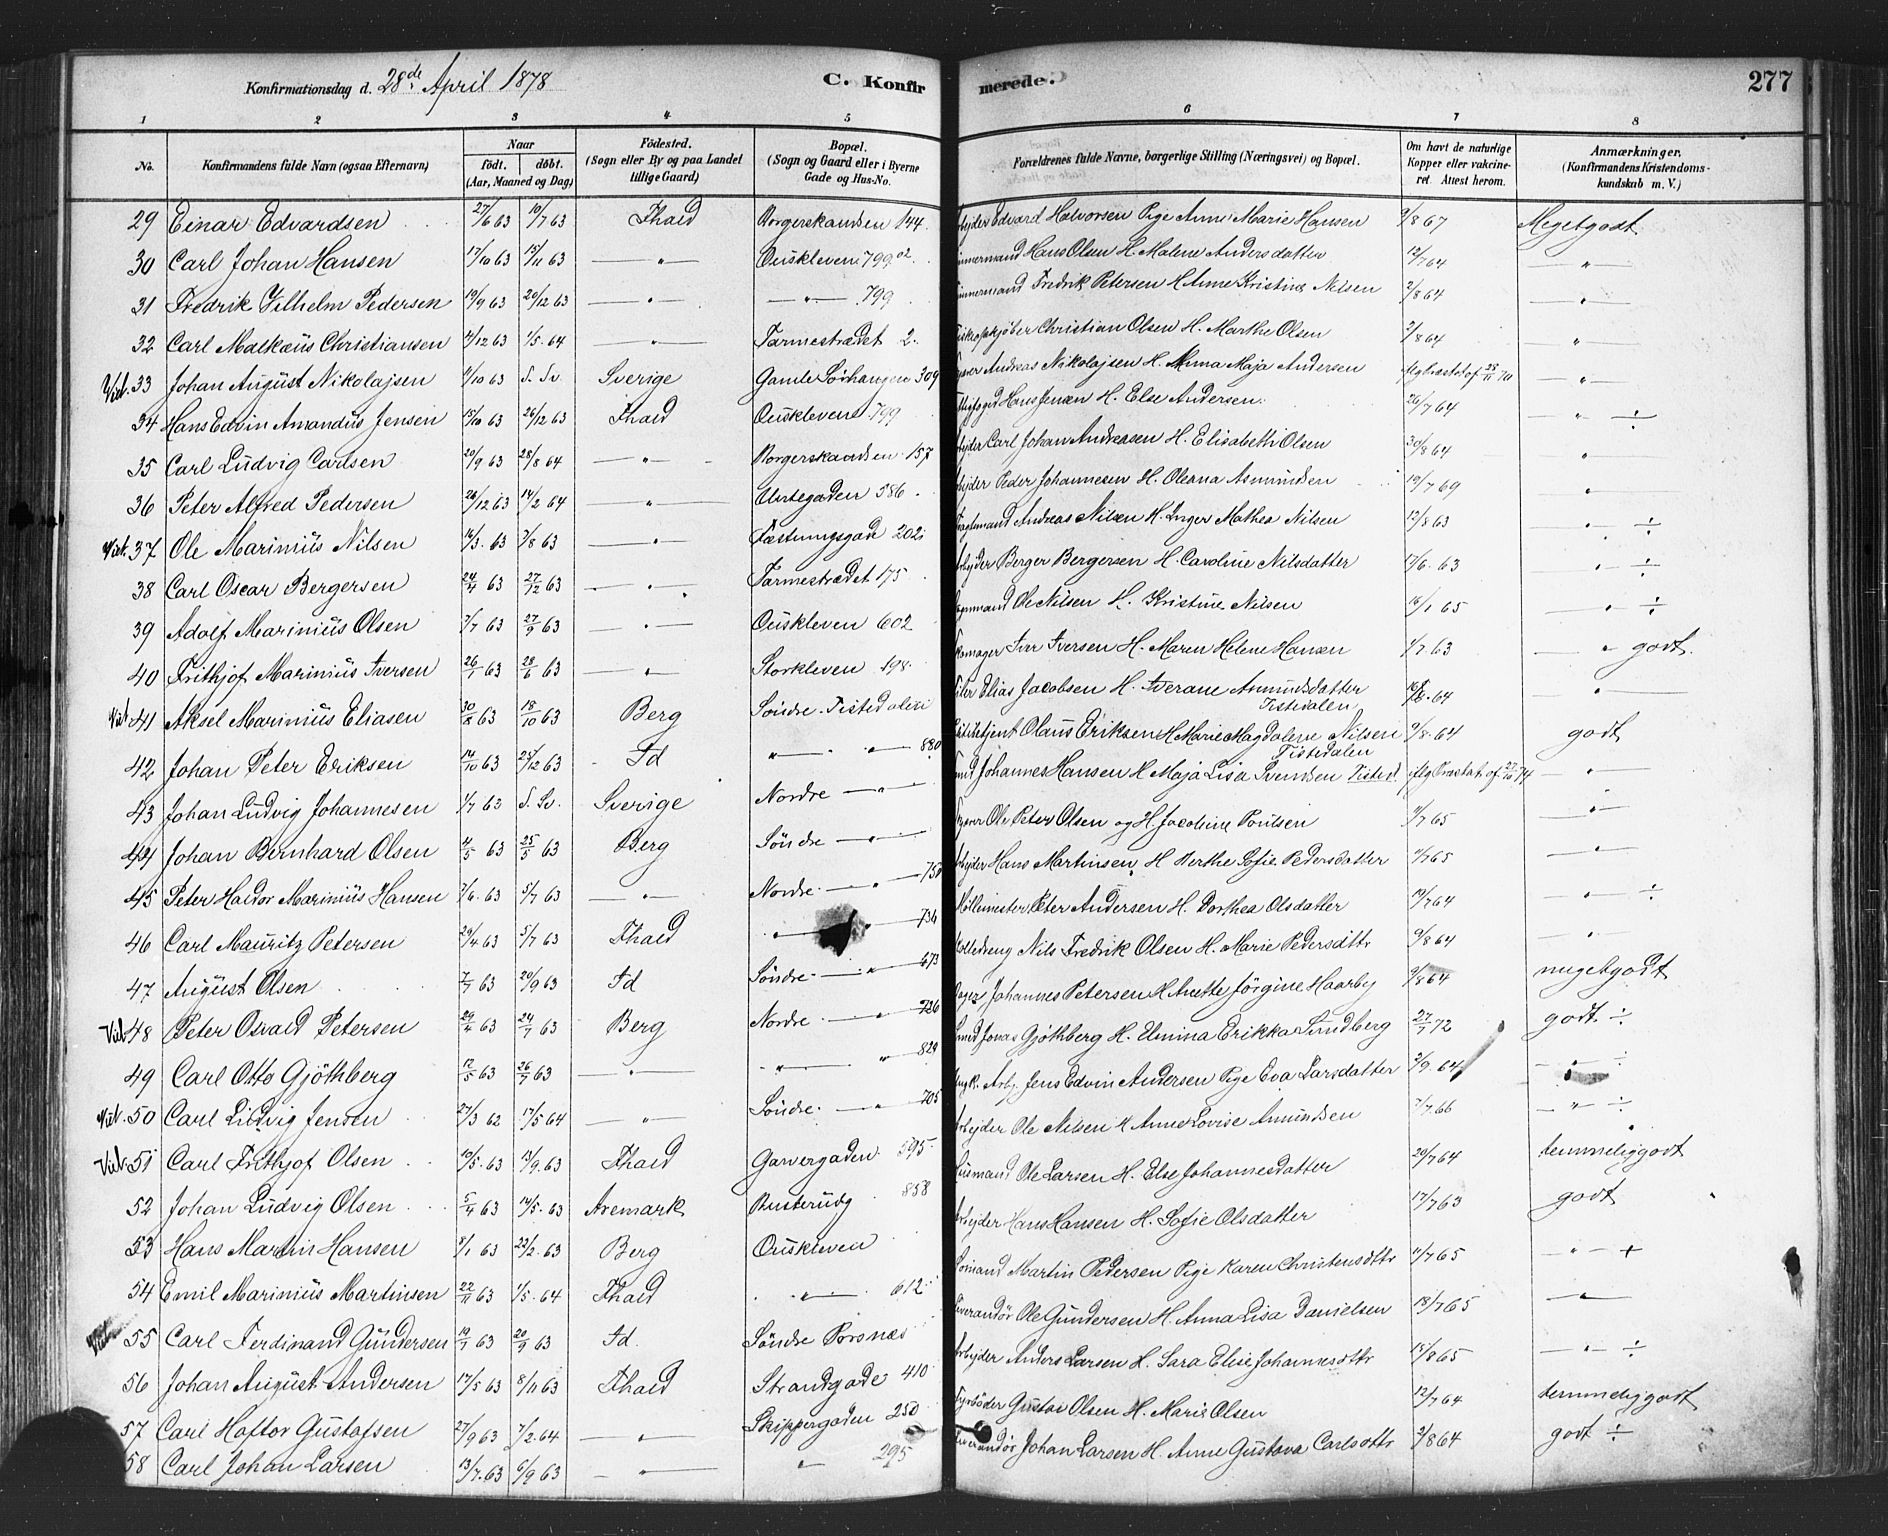 Konfirmationsdag d. 28de April 1878 C. Konfirmerede. 277
1 2 3 4 5 6 7 8
No. Konfirmandens fulde Navn (ogsaa Efternavn) Naar født. døbt. (Aar, Maaned og Dag) Fødested. (Sogn eller By og paa Landet tillige Gaard) Bopæl. (Sogn og Gaard eller i Byerne Gade og Hus-No. Forældrenes fulde Navne, borgerlige Stilling (Næringsvei) og Bopæl. Om havt de naturlige Kopper eller vakcineret Attest herom. Anmærkninger. (Konfirmandens Kristendomskundskab m. V.)
29 Einar Edvardsen 27/6 63 10/7 63 Fhald 144 Edvard Halvorsen Pige Anne Marie Hansen 67 Megetgodt
30 Carl Johan Hansen 17/10 63 15/11 63 — " — Ouskleven 799 02 Hans Olsen H. Malene Andersdatter 12/7 64 — " —
31 Fredrik Vilhelm Pedersen 19/9 63 20/12 63 — " — — " — 799 Fredrik Petersen H Anne Kristine Nilsen 2/8 64 — " —
32 Carl Malkæus Christiansen 63 1/5 64 — " — Farmestrædet 2. Christian Olsen H. Marthe Olsen 2/8 64 — " —
33 Johan August Nikolajsen 63 S. Sv. Sverige Gamle 309 Andreas Nikolajsen H. Anna Maja Andersen 70 — " —
34 Hans Edvin Amandus Jensen 15/10 63 26/12 63 Fhald Ouskleven 799 Hans Jensen H. Else Andersen 26/7 64 — " — ÷
35 Carl Ludvig Carlsen 20/9 63 28/8 64 — " — 157 Carl Johan Andreasen H. Elisabeth Olsen 30/8 64 "
36 Peter Alfred Pedersen 26/12 63 14/2 64 — " — Urtegaden 586 Peder Johannesen H. Oleana Asmundsen 19/7 69 "
37 Ole Marinius Nilsen 63 63 — " — Fæstningsgade 202 Andreas Nilsen H. Inger Mathea Nilsen 12/8 63 — " — ÷
38 Carl Oscar Bergersen 24/4 63 27/12 63 — " — Farmestrædet 175 Berger Bergersen H. Caroline Nilsdatter 17/6 63 — " — ÷
39 Adolf Marinius Olsen 63 27/9 63 — " — Ouskleven 602 Ole Nilsen H. Kristine Nilsen 16/1 65 — " — ÷
40 Frithjof Marinius Iversen 26/1 63 28/6 63 — " — Storkleven 198 Iver Iversen H. Maren Helene Hansen 63 — " — godt.
41 Aksel Marinius Eliasen 30/8 63 18/10 63 Berg Søndre Tistedalen Elias Jacobsen H. Asmundsdatter Tistedalen 64 — " —
42 Johan Peter Eriksen 14/10 63 63 Id " — " — 880 Olaus Eriksen H Marie Magdalene Nilsen Tistedalen 9/8 64 godt
43 Johan Ludvig Johannesen 1/7 63 S. Sv. Sverige Nordre — " — Johannes Hansen H Maja Lisa Svendsen Tisted. 74 — " —
44 Johan Bernhard Olsen 4/5 63 25/5 63 Berg Søndre — " — Ole Peter Olsen og H. Jacobine Poulsen 65 — " —
45 Peter Haldor Marinius Hansen 7/6 63 5/7 63 — " — Nordre — " — Hans Martinsen H Berthe Sofie Pedersdatter 65 — " —
46 Carl Mauritz Petersen 29/4 63 5/7 63 Fhald " — " — 736 Peter Andersen H. Dorthea Olsdatter 19/7 64 — " — ÷
47 August Olsen 63 20/9 63 Id Søndre — " — 673 Nils Fredrik Olsen H. Marie Pedersdttr 9/8 64 — " —
48 Peter Osvald Petersen 29/4 63 24/7 63 Berg Nordre — " — 736 Johannes Petersen H Anette Jørgine Haarby 9/8 64 megetgodt
49 Carl Otto Gjøthberg 12/5 63 26/7 63 — " — — " — " — 829 Jonas Gjøthberg H. Elmina Erikka Sundberg 27/7 72 godt ÷
50 Carl Ludvig Jensen 27/3 62 17/5 64 — " — Søndre — " — 705 Jens Edvin Andersen Pige Eva Larsdatter 2/9 64 — " — ÷
51 Carl Frithjof Olsen 10/5 63 13/9 63 Fhald Garvergaden 595 Ole Nilsen H Anne Lovise Amundsen 66 — " — ÷
52 Johan Ludvig Olsen 5/4 63 14/5 63 Aremark Busterudg 858 Ole Larsen H. Else Johannesdatter 20/7 64 temmeliggodt
53 Hans Martin Hansen 63 22/2 63 Berg Ouskleven Hans Hansen H. Sofie Olsdatter 17/7 63 godt
54 Emil Marinius Martinsen 22/11 63 1/5 64 Fhald — " — 612 Martin Pedersen Pige Karen Christensdttr 65 — " — +
55 Carl Ferdinand Gundersen 63 20/9 63 Id. Søndre Porsnæs Ole Gundersen H. Anna Lisa Danielsen 13/7 65 — " —
56 Johan August Andersen 17/5 63 8/11 63 Fhald Strandgade 410 Anders Larsen H. Sara Elise Johannesdttr 15/8 65 — " — ÷
57 Carl Haftor Gustafsen 27/9 63 7/2 64 — " — Skippergaden 250 Gustav Olsen H. Marie Olsen 12/7 64 temmeliggodt
58 Carl Johan Larsen 13/7 63 6/9 63 — " — " 295 Johan Larsen H. Anne Gustava Carlsdttr 64 godt ÷